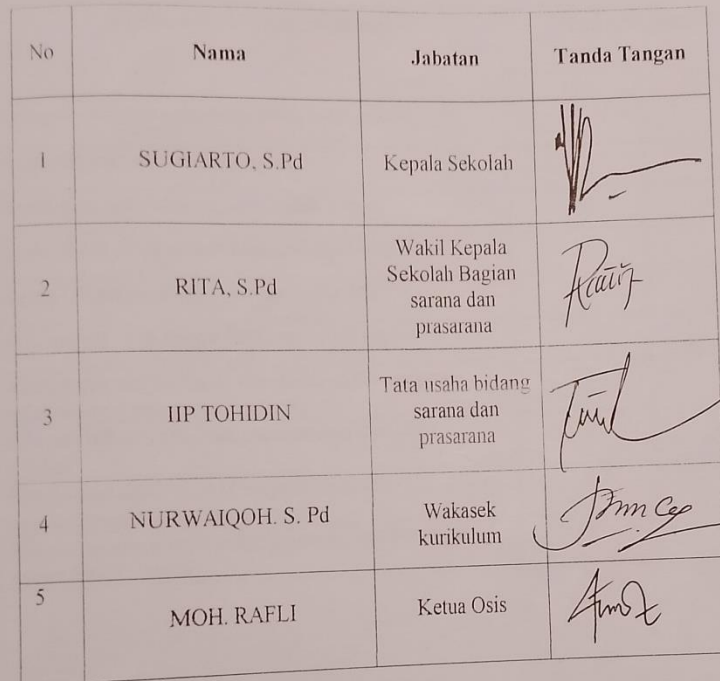 No Nama Jabatan Tanda Tangan
1 SUGIARTO, S.Pd Kepala Sekolah
2 RITA, S.Pd Wakil Kepala
Sekolah Bagian
sarana dan
prasarana
3 IIP TOHIDIN Tata usaha bidang
sarana dan
prasarana
4 NURWAIQOH. S. Pd Wakasek
kurikulum
5 MOH. RAFLI Ketua Osis